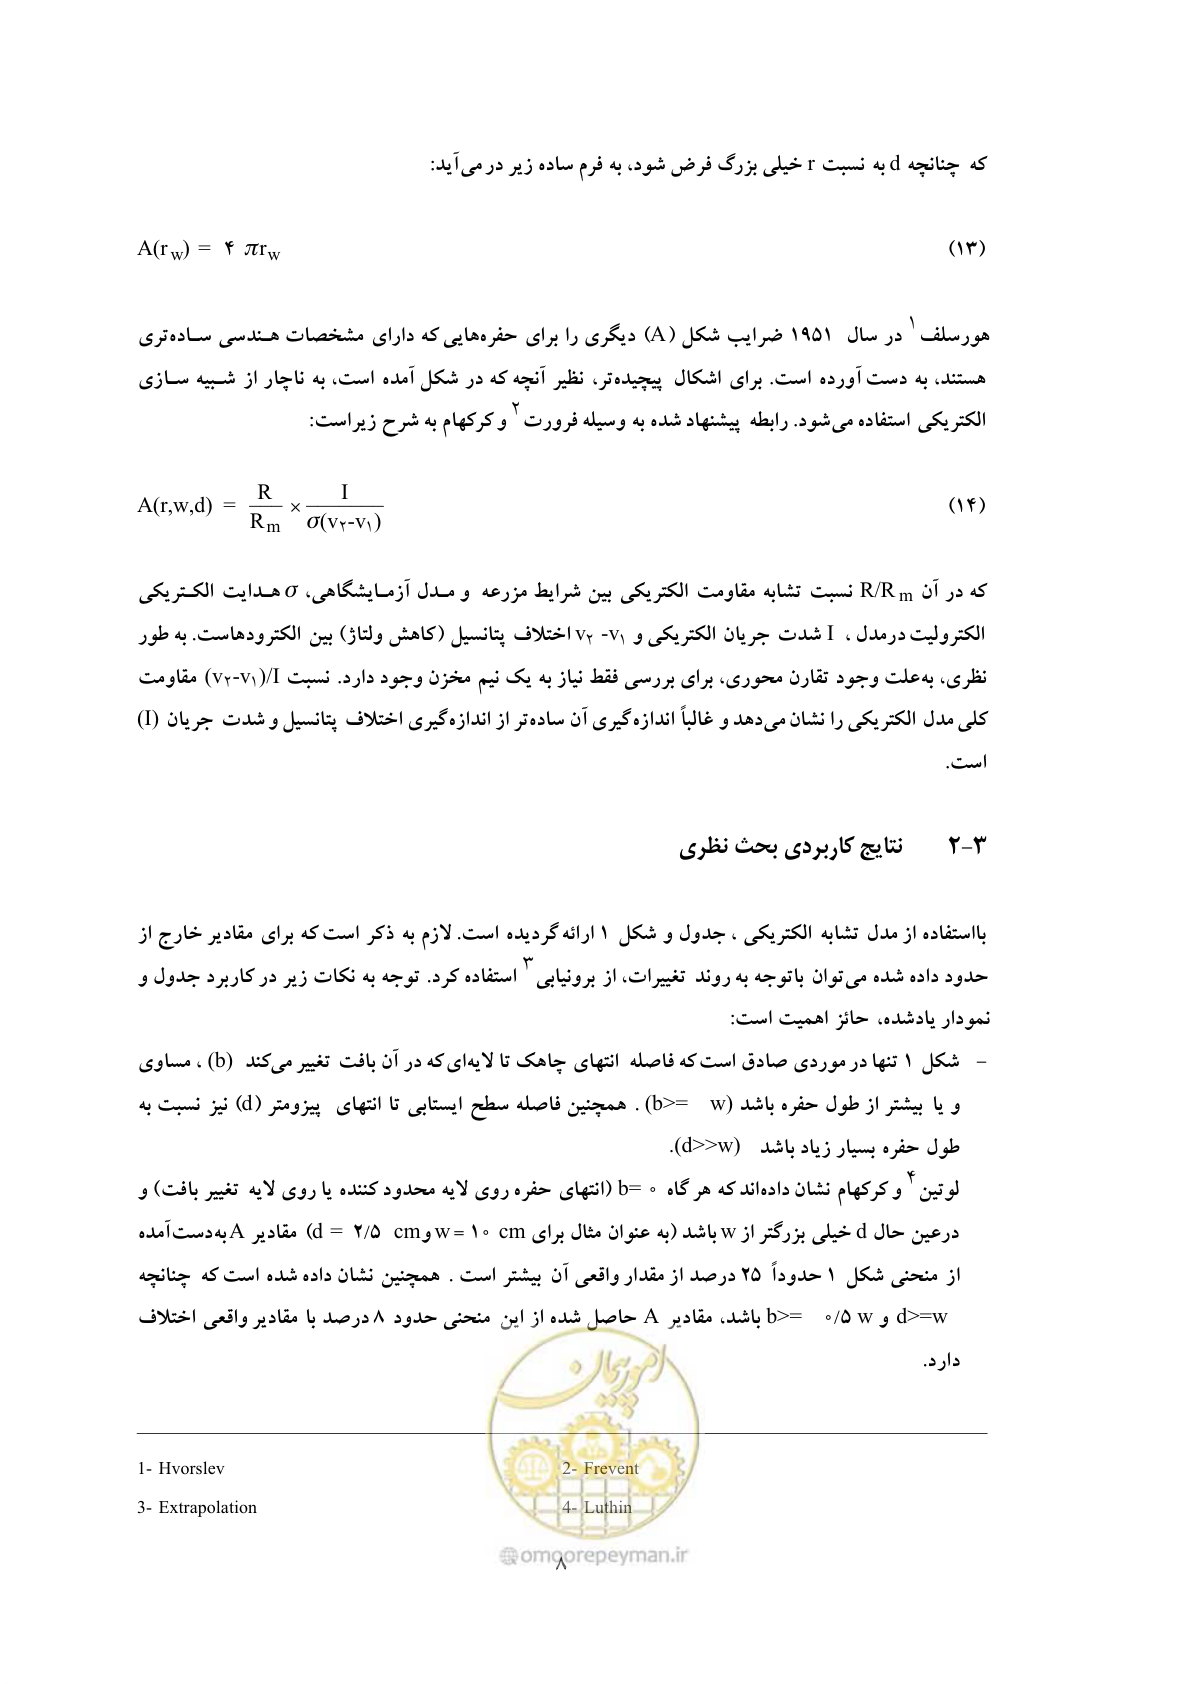 که چنانچه d به نسبت r خیلی بزرگ فرض شود، به فرم ساده زیر در می‌آید:
A(r_w) = ۴ πr_w (۱۳)
هورسلف۱ در سال ۱۹۵۱ ضرایب شکل (A) دیگری را برای حفره‌هایی که دارای مشخصات هندسی ساده‌تری
هستند، به دست آورده است. برای اشکال پیچیده‌تر، نظیر آنچه که در شکل آمده است، به ناچار از شبیه سازی
الکتریکی استفاده می‌شود. رابطه پیشنهاد شده به وسیله فرورت۲ و کرکهام به شرح زیراست:
A(r,w,d) = R/R_m × I/σ(v۲-v۱) (۱۴)
که در آن R/R_m نسبت تشابه مقاومت الکتریکی بین شرایط مزرعه و مدل آزمایشگاهی، σ هدایت الکتریکی
الکترولیت درمدل ، I شدت جریان الکتریکی و v۲ -v۱ اختلاف پتانسیل (کاهش ولتاژ) بین الکترودهاست. به طور
نظری، به‌علت وجود تقارن محوری، برای بررسی فقط نیاز به یک نیم مخزن وجود دارد. نسبت (v۲-v۱)/I مقاومت
کلی مدل الکتریکی را نشان می‌دهد و غالباً اندازه‌گیری آن ساده‌تر از اندازه‌گیری اختلاف پتانسیل و شدت جریان (I)
است.
۲-۳ نتایج کاربردی بحث نظری
بااستفاده از مدل تشابه الکتریکی ، جدول و شکل ۱ ارائه گردیده است. لازم به ذکر است که برای مقادیر خارج از
حدود داده شده می‌توان باتوجه به روند تغییرات، از برونیابی۳ استفاده کرد. توجه به نکات زیر در کاربرد جدول و
نمودار یادشده، حائز اهمیت است:
– شکل ۱ تنها در موردی صادق است که فاصله انتهای چاهک تا لایه‌ای که در آن بافت تغییر می‌کند (b) ، مساوی
و یا بیشتر از طول حفره باشد (b>= w) . همچنین فاصله سطح ایستابی تا انتهای پیزومتر (d) نیز نسبت به
طول حفره بسیار زیاد باشد (d>>w).
لوتین۴ و کرکهام نشان داده‌اند که هر گاه b= ۰ (انتهای حفره روی لایه محدود کننده یا روی لایه تغییر بافت) و
درعین حال d خیلی بزرگتر از w باشد (به عنوان مثال برای w= ۱۰ cm و d = ۲/۵ cm) مقادیر A به‌دست‌آمده
از منحنی شکل ۱ حدوداً ۲۵ درصد از مقدار واقعی آن بیشتر است . همچنین نشان داده شده است که چنانچه
d>=w و b>= ۰/۵ w باشد، مقادیر A حاصل شده از این منحنی حدود ۸ درصد با مقادیر واقعی اختلاف
دارد.
امور پیمان
1- Hvorslev 2- Frevent
3- Extrapolation 4- Luthin
@omoorepeyman.ir
۸